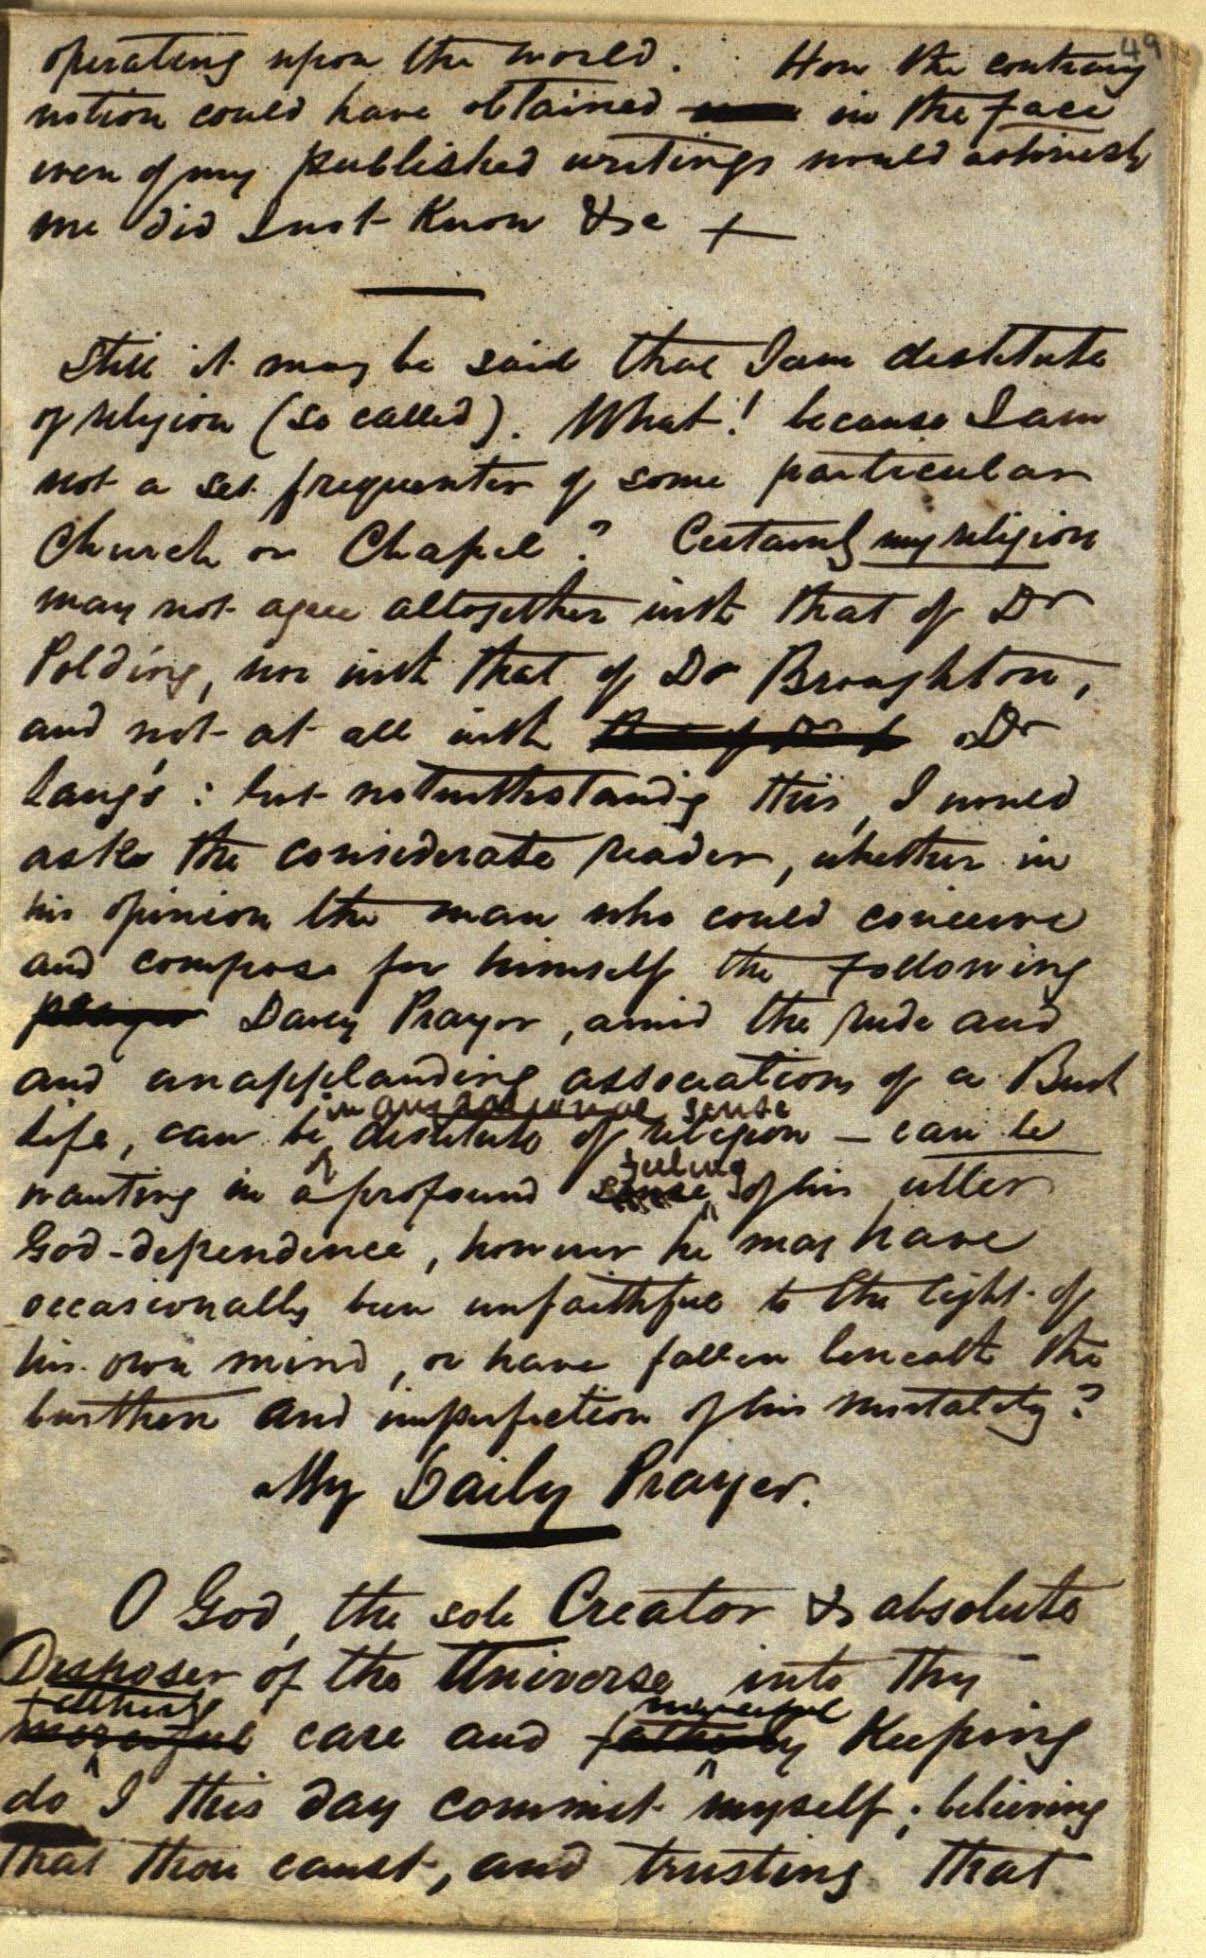 49
operating upon the world. How the contrary
notion could have obtained in the face
even of my published writings would astonish
me did I not know &c +
Still it may be said that I am destitute
of religion (so called). What! because I am
not a set frequenter of some particular
Church or Chapel? Certainly my religion
may not agree altogether with that of Dr
Polding, nor with that of Dr Broughton,
and not at all with that of Dr L Dr
Lang's: but notwithstandg this, I would
ask the considerate reader, whether in
his opinion the man who could conceive
and compose for himself the following
prayer Daily Prayer, amid the rude and
and unapplauding associations of a Bush
in any rational sense
life, can be destitute of religion – can be
feeling
wanting in a profound sense of his utter
God-dependence, however he may have
occasionally been unfaithful to the light of
his own mind, or have fallen beneath the
burthen and imperfection of his mortality?
My Daily Prayer.
O God, the sole Creator & absolute
Disposer of the Universe into Thy
fatherly merciful
merciful care and fatherly Keeping
do I this day commit myself; believing
that thou canst, and trusting that